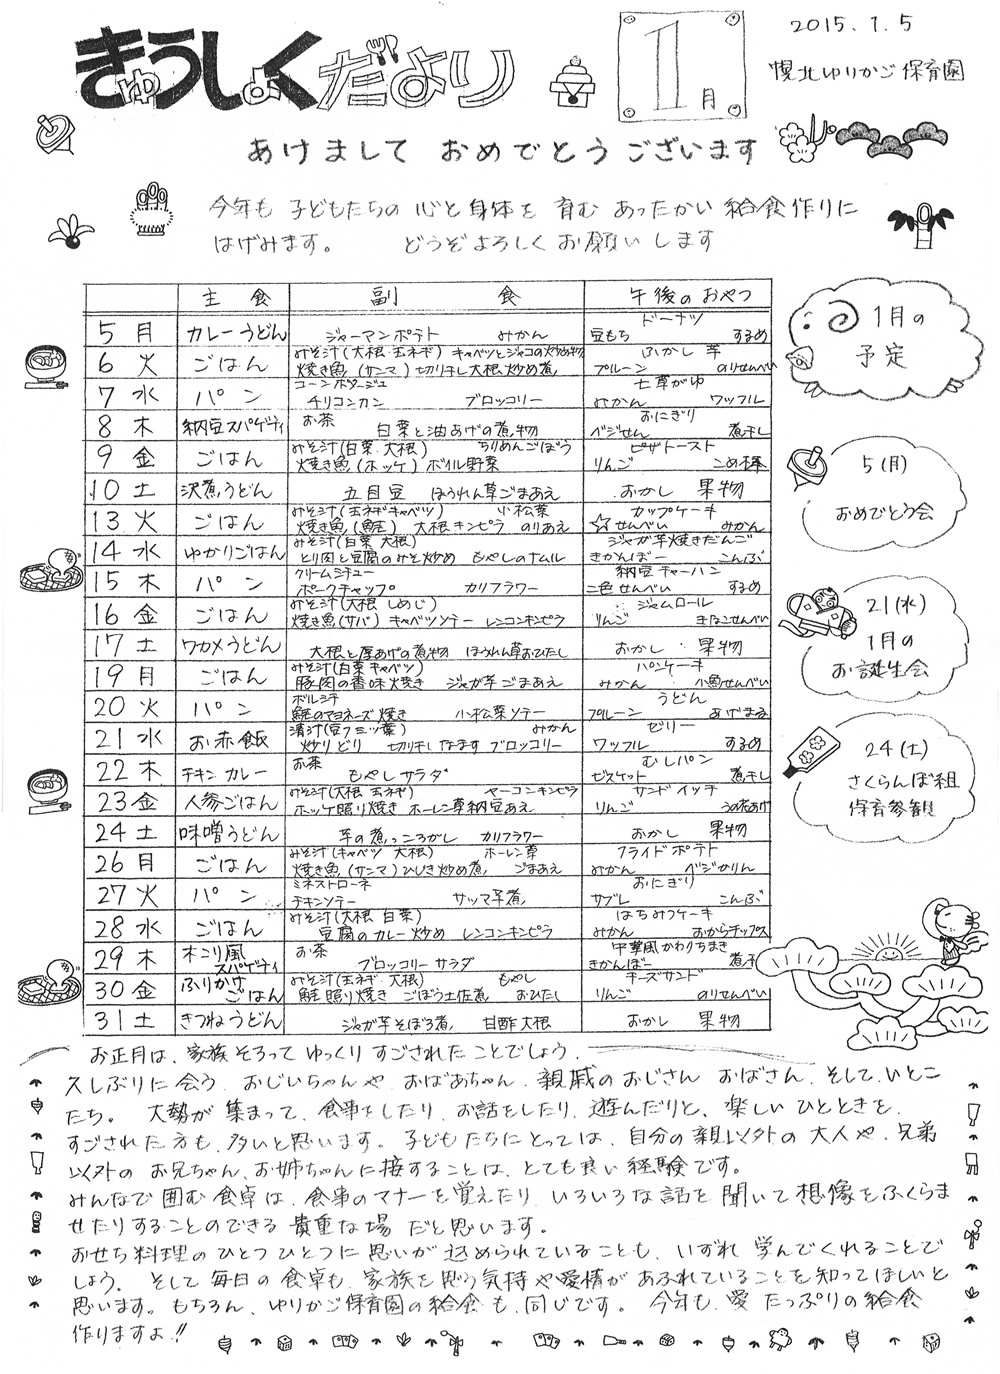 きゅうしょくだより
1月
2015.1.5
幌北ゆりかご保育園
あけまして おめでとうございます
今年も 子どもたちの 心と身体を 育む あったかい 給食作りに
はげみます。 どうぞよろしくお願いします
主食 副食 午後のおやつ
5 月 カレーうどん ジャーマンポテト みかん ドーナツ 豆もち するめ
6 火 ごはん みそ汁(大根 玉ネギ) キャベツとジャコの炒め物 ふかし芋
焼き魚(サンマ) 切り干し大根炒め煮 プルーン のりせんべい
7 水 パン コーンポタージュ 七草がゆ
チリコンカン ブロッコリー みかん ワッフル
8 木 納豆スパゲティ お茶 おにぎり
白菜と油あげの煮物 ベジせん 煮干し
9 金 ごはん みそ汁(白菜 大根) ちりめんごぼう ピザトースト
焼き魚(ホッケ) ボイル野菜 りんご こめ棒
10 土 沢煮うどん 五目豆 ほうれん草ごまあえ おかし 果物
13 火 ごはん みそ汁(玉ネギキャベツ) 小松菜 カップケーキ
焼き魚(鮭) 大根キンピラ のりあえ ☆せんべい みかん
14 水 ゆかりごはん みそ汁(白菜 大根) ジャガ芋焼きだんご
とり肉と豆腐のみそ炒め もやしのナムル きかんぼー こんぶ
15 木 パン クリームシチュー 納豆チャーハン
ポークチャップ カリフラワー 三色せんべい するめ
16 金 ごはん みそ汁(大根 しめじ) ジャムロール
焼き魚(サバ) キャベツソテー レンコンキンピラ りんご きなこせんべい
17 土 ワカメうどん 大根と厚あげの煮物 ほうれん草おひたし おかし 果物
19 月 ごはん みそ汁(白菜キャベツ) パンケーキ
豚肉の香味焼き ジャガ芋ごまあえ みかん 小魚せんべい
20 火 パン ボルシチ うどん
鮭のマヨネーズ焼き 小松菜ソテー プルーン あげまる
21 水 お赤飯 清汁(豆フ三ツ葉) みかん ゼリー
炒りどり 切り干しなます ブロッコリー ワッフル するめ
22 木 チキンカレー お茶 むしパン
もやしサラダ ビスケット 煮干し
23 金 人参ごはん みそ汁(大根 玉ネギ) ヤーコンキンピラ サンドイッチ
ホッケ照り焼き ホーレン草納豆あえ りんご うの花あげ
24 土 味噌うどん 芋の煮っころがし カリフラワー おかし 果物
26 月 ごはん みそ汁(キャベツ 大根) ホーレン草 フライドポテト
焼き魚(サンマ)ひじき炒め煮 ごまあえ みかん ベジかりん
27 火 パン ミネストローネ おにぎり
チキンソテー サツマ芋煮 サブレ こんぶ
28 水 ごはん みそ汁(大根 白菜) はちみつケーキ
豆腐のカレー炒め レンコンキンピラ みかん おからチップス
29 木 木こり風スパゲティ お茶 中華風かわりちまき
ブロッコリーサラダ きかんぼー 煮干
30 金 ふりかけごはん みそ汁(玉ネギ 大根) もやし チーズサンド
鮭照り焼き ごぼう土佐煮 おひたし りんご のりせんべい
31 土 きつねうどん ジャガ芋そぼろ煮 甘酢大根 おかし 果物
1月の
予定
5(月)
おめでとう会
21(水)
1月の
お誕生会
24(土)
さくらんぼ組
保育参観
お正月は、家族そろって ゆっくり すごされたことでしょう。
久しぶりに会う おじいちゃんや おばあちゃん、親戚のおじさん おばさん、そして、いとこ
たち。 大勢が 集まって、食事をしたり、お話をしたり、遊んだりと、楽しいひとときを
すごされた方も、多いと思います。 子どもたちにとっては、自分の親以外の大人や、兄弟
以外の お兄ちゃん、お姉ちゃんに接することは、とても良い経験です。
みんなで 囲む食卓は、食事のマナーを覚えたり、いろいろな話を聞いて想像をふくらま
せたりすることのできる 貴重な場 だと思います。
おせち料理のひとつひとつに思いが込められていることも、いずれ 学んでくれることで
しょう。 そして毎日の食卓も、家族を思う気持や愛情があふれていることを知ってほしいと
思います。もちろん、ゆりかご保育園の給食も、同じです。 今年も、愛たっぷりの給食
作りますよ!!